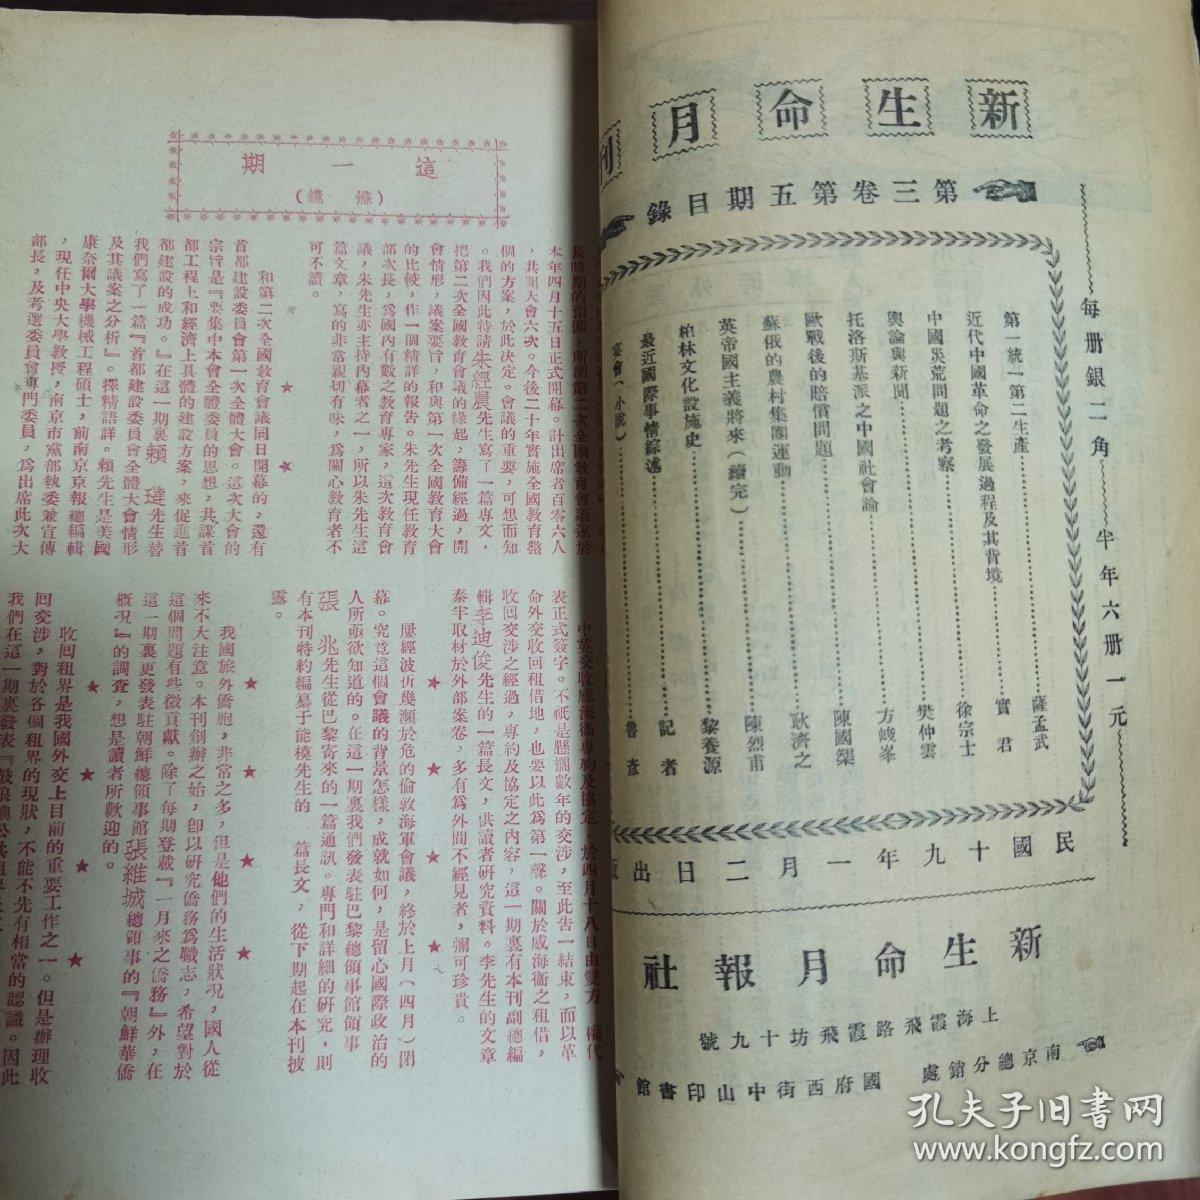 新生命月刊
第三卷第五期目錄
每册銀二角
半年六册一元
第一統一第二生產 薩孟武
近代中國革命之發展過程及其背境 實君
中國災荒問題之考察 徐宗士
輿論與新聞 樊仲雲
托洛斯基派之中國社會論 方峻峯
歐戰後的賠償問題 陳國榘
蘇俄的農村集團運動 耿濟之
英帝國主義將來(續完) 陳烈甫
柏林文化設施史 黎養源
最近國際事情綜述 記者
宴會(小說) 魯彥
民國十九年一月二日出版
新生命月報社
上海霞飛路霞飛坊十九號
南京總分銷處 國府西街中山印書館
這一期
本年四月十五日正式開幕。計出席者百零六人
,共開大會六次。今後二十年實施全國教育整
個的方案,於此決定。會議的重要,可想而知
。我們因此特請朱經農先生寫了一篇專文,
把第二次全國教育會議的緣起,籌備經過,開
會情形,議案要旨,和與第一次全國教育大會
的比較,作一個精詳的報告。朱先生現任教育
部次長,爲國內有數之教育專家,這次教育會
議,朱先生亦主持內幕者之一,所以朱先生這
篇文章,寫的非常親切有味,爲關心教育者不
可不讀。
★
和第二次全國教育會議同日開幕的,還有
首都建設委員會第一次全體大會。這次大會的
宗旨是『要集中本會全體委員的思想,共謀首
都工程上和經濟上具體的建設方案,來促進首
都建設的成功。』在這一期裏賴璉先生替
我們寫了一篇『首都建設委員會全體大會情形
及其議案之分析』。擇精語詳。賴先生是美國
康奈爾大學機械工程碩士,前南京京報總編輯
,現任中央大學教授,南京市黨部執委兼宣傳
部長,及考選委員會專門委員,爲出席此次大
中英交收威海衛專約及協定,於四月十八日由雙方
表正式簽字。不祇是懸擱數年的交涉,至此告一結束,而以革
命外交收回租借地,也要以此爲第一聲。關於威海衞之租借,
收回交涉之經過,專約及協定之內容,這一期裏有本刊副總編
輯李迪俊先生的一篇長文,供讀者研究資料。李先生的文章
泰半取材於外部案卷,多有爲外間不經見者,彌可珍貴。
★
屢經波折幾瀕於危的倫敦海軍會議,終於上月(四月)閉
幕。究竟這個會議的背景怎樣,成就如何,是留心國際政治的
人所亟欲知道的。在這一期裏我們發表駐巴黎總領事館領事
張兆先生從巴黎寄來的一篇通訊。專門和詳細的研究,則
有本刊特約編纂于能模先生的 篇長文,從下期起在本刊披
露。
★
我國旅外僑胞,非常之多,但是他們的生活狀況,國人從
來不大注意。本刊創辦之始,卽以研究僑務爲職志,希望對於
這個問題有些微貢獻。除了每期登載『一月來之僑務』外,在
這一期裏更發表駐朝鮮總領事館張維城總領事的『朝鮮華僑
概況』的調查,想是讀者所歡迎的。
★
收回租界是我國外交上目前的重要工作之一。但是辦理收
回交涉,對於各個租界的現狀,不能不先有相當的認識。因此
孔夫子旧书网
www.kongfz.com